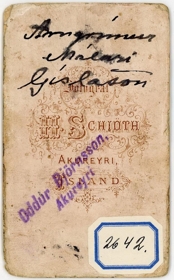 Arngrímur
Málari
Gíslason
Fotograf
H. Schiöth
AKUREYRI,
ISLAND
Oddur Björnsson,
Akureyri
2642.